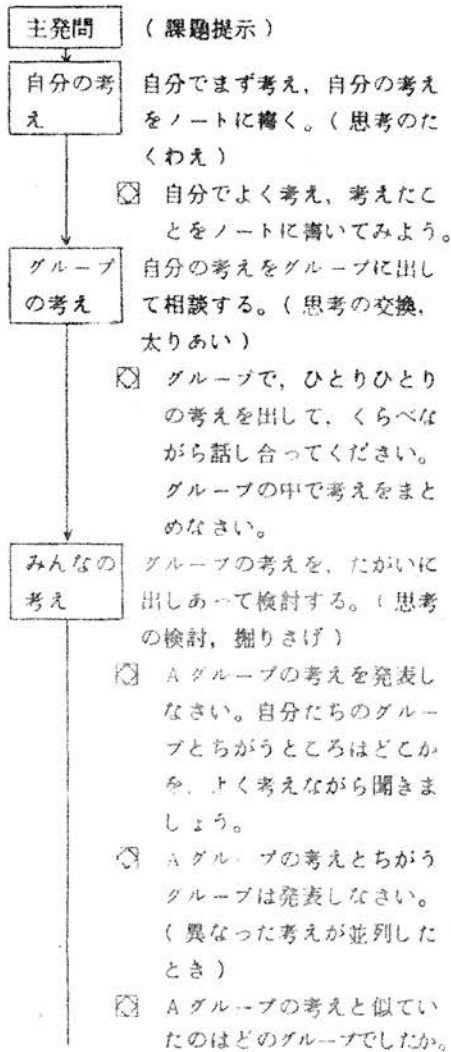 主発問 (課題提示)
自分の考え 自分でまず考え，自分の考え
をノートに書く。(思考のた
くわえ)
自分でよく考え、考えたこ
とをノートに書いてみよう。
グループの考え 自分の考えをグループに出し
て相談する。(思考の交換，
太りあい)
グループで，ひとりひとり
の考えを出して，くらべな
がら話し合ってください。
グループの中で考えをまと
めなさい。
みんなの考え グループの考えを，たがいに
出しあって検討する。(思考
の検討，掘りさげ)
Aグループの考えを発表し
なさい。自分たちのグルー
プとちがうところはどこか
を，よく考えながら聞きま
しょう。
Aグループの考えとちがう
グループは発表しなさい。
(異なった考えが並列した
とき)
Aグループの考えと似てい
たのはどのグループでしたか。